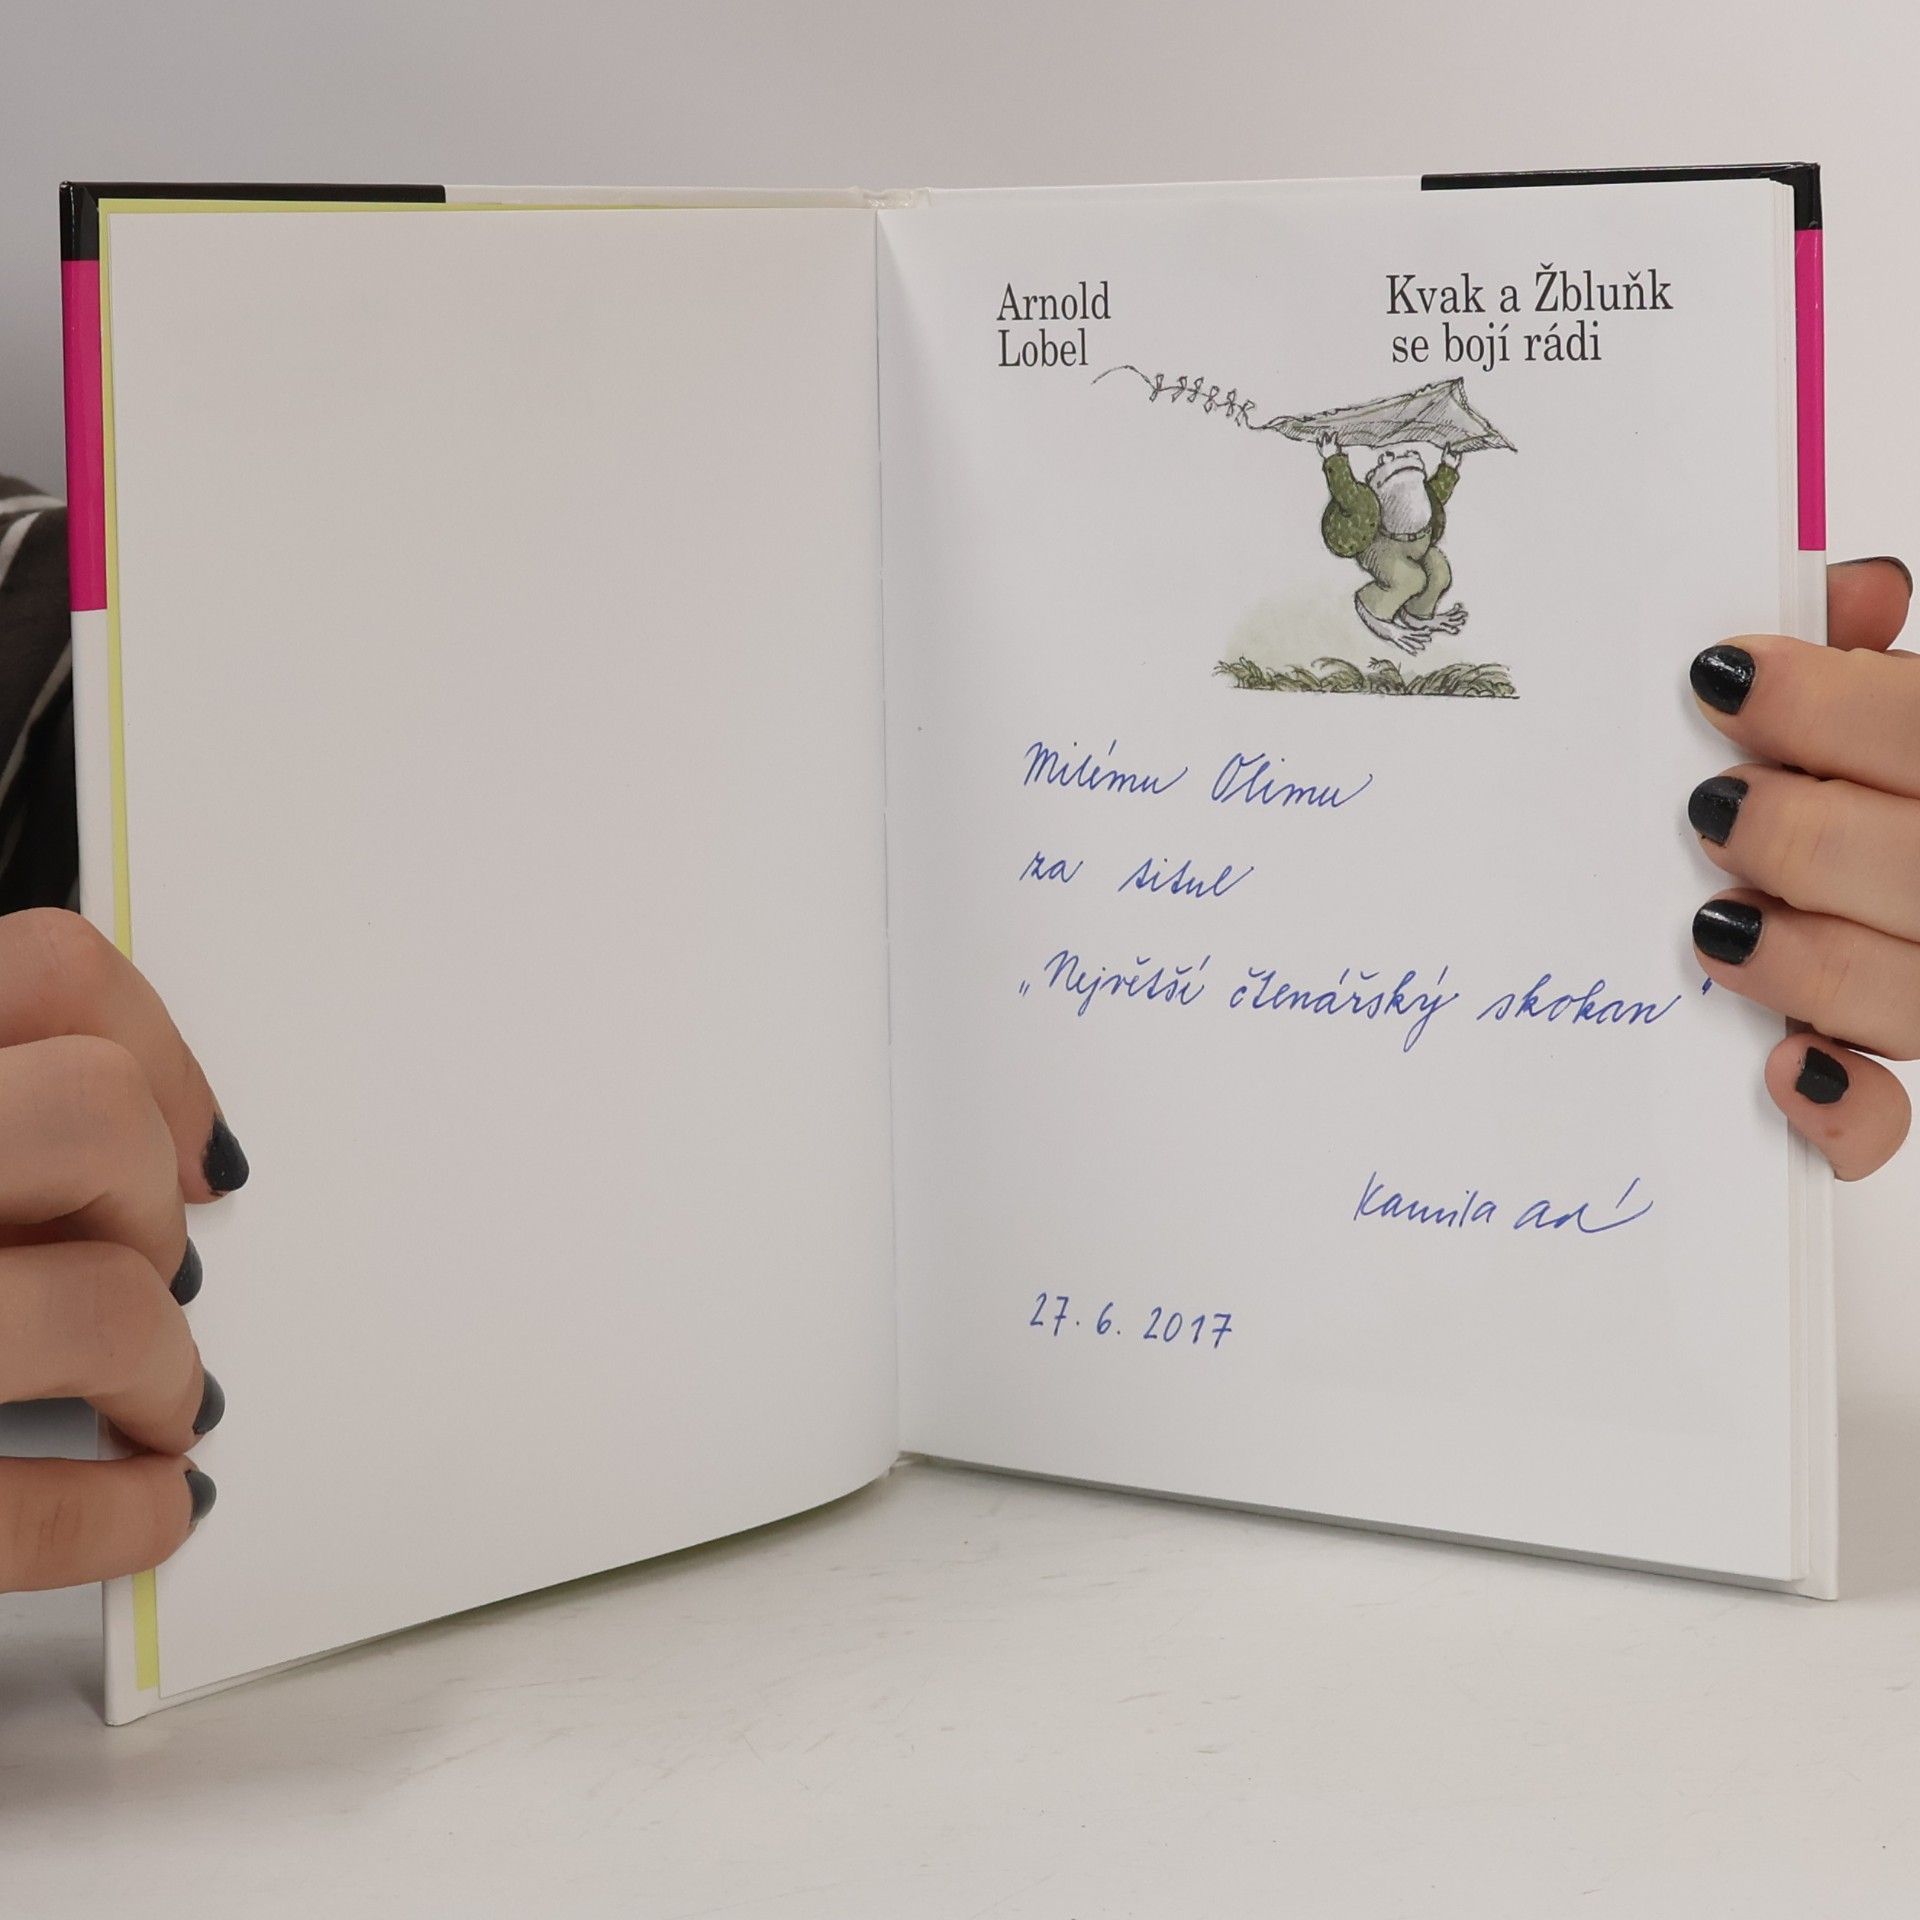 Arnold
Lobel
Kvak a Žbluňk
se bojí rádi
Milému Olimu
za titul
„Největší čtenářský skokan“
Kamila
27. 6. 2017